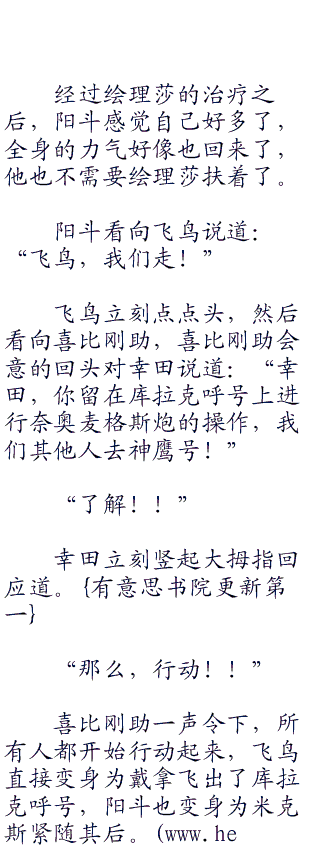 经过绘理莎的治疗之
后，阳斗感觉自己好多了，
全身的力气好像也回来了，
他也不需要绘理莎扶着了。
阳斗看向飞鸟说道：
“飞鸟，我们走！”
飞鸟立刻点点头，然后
看向喜比刚助，喜比刚助会
意的回头对幸田说道：“幸
田，你留在库拉克呼号上进
行奈奥麦格斯炮的操作，我
们其他人去神鹰号！”
“了解！！”
幸田立刻竖起大拇指回
应道。{有意思书院更新第
一}
“那么，行动！！”
喜比刚助一声令下，所
有人都开始行动起来，飞鸟
直接变身为戴拿飞出了库拉
克呼号，阳斗也变身为米克
斯紧随其后。(www.he